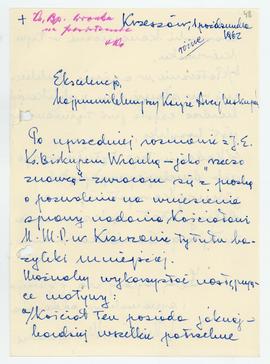 + Ks. Bp. Wronka
Krzeszów, 1 października
1962
Ekscelencjo,
Najprzewielebniejszy Księże Arcybiskupie
Po uprzedniej rozmowie z J.E.
Ks. Biskupem Wronką – jako "rzecz
znową" – zwracam się z prośbą
o pozwolenie na wniesienie
sprawy nadania Kościołowi
N.M.P. w Krzeszowie tytułu ba-
zyliki mniejszej.
Możnaby wykorzystać następują-
ce motywy:
a/ Kościół ten posiada jaknaj-
bardziej wszelkie potrzebne